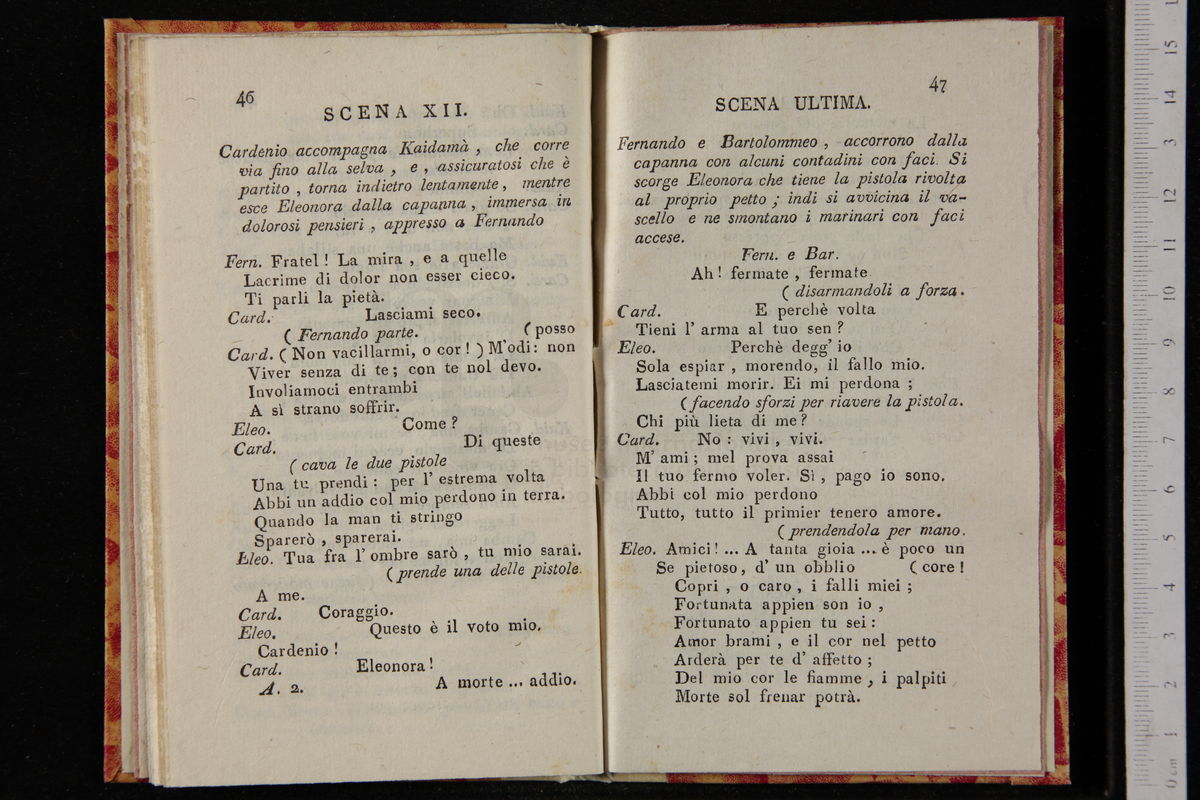 46
SCENA XII.
Cardenio accompagna Kaidamà , che corre
via fino alla selva , e , assicuratosi che è
partito , torna indietro lentamente , mentre
esce Eleonora dalla capanna , immersa in
dolorosi pensieri , appresso a Fernando
Fern. Fratel ! La mira , e a quelle
Lacrime di dolor non esser cieco.
Ti parli la pietà.
Card. Lasciami seco.
( Fernando parte. ( posso
Card. ( Non vacillarmi, o cor ! ) M'odi: non
Viver senza di te ; con te nol devo.
Involiamoci entrambi
A sì strano soffrir.
Eleo. Come ?
Card. Di queste
( cava le due pistole
Una tu prendi : per l' estrema volta
Abbi un addio col mio perdono in terra.
Quando la man ti stringo
Sparerò , sparerai.
Eleo. Tua fra l' ombre sarò , tu mio sarai.
( prende una delle pistole.
A me.
Card. Coraggio.
Eleo. Questo è il voto mio.
Cardenio !
Card. Eleonora !
A. 2. A morte ... addio.
47
SCENA ULTIMA.
Fernando e Bartolommeo , accorrono dalla
capanna con alcuni contadini con faci. Si
scorge Eleonora che tiene la pistola rivolta
al proprio petto ; indi si avvicina il va-
scello e ne smontano i marinari con faci
accese.
Fern. e Bar.
Ah ! fermate , fermate
( disarmandoli a forza.
Card. E perchè volta
Tieni l' arma al tuo sen ?
Eleo. Perchè degg' io
Sola espiar , morendo, il fallo mio.
Lasciatemi morir. Ei mi perdona ;
( facendo sforzi per riavere la pistola.
Chi più lieta di me ?
Card. No : vivi , vivi.
M' ami ; mel prova assai
Il tuo fermo voler. Sì , pago io sono.
Abbi col mio perdono
Tutto, tutto il primier tenero amore.
( prendendola per mano.
Eleo. Amici ! ... A tanta gioia ... è poco un
Se pietoso, d' un obblio ( core !
Copri , o caro , i falli miei ;
Fortunata appien son io ,
Fortunato appien tu sei :
Amor brami , e il cor nel petto
Arderà per te d' affetto ;
Del mio cor le fiamme , i palpiti
Morte sol frenar potrà.
0 cm 1 2 3 4 5 6 7 8 9 10 11 12 13 14 15